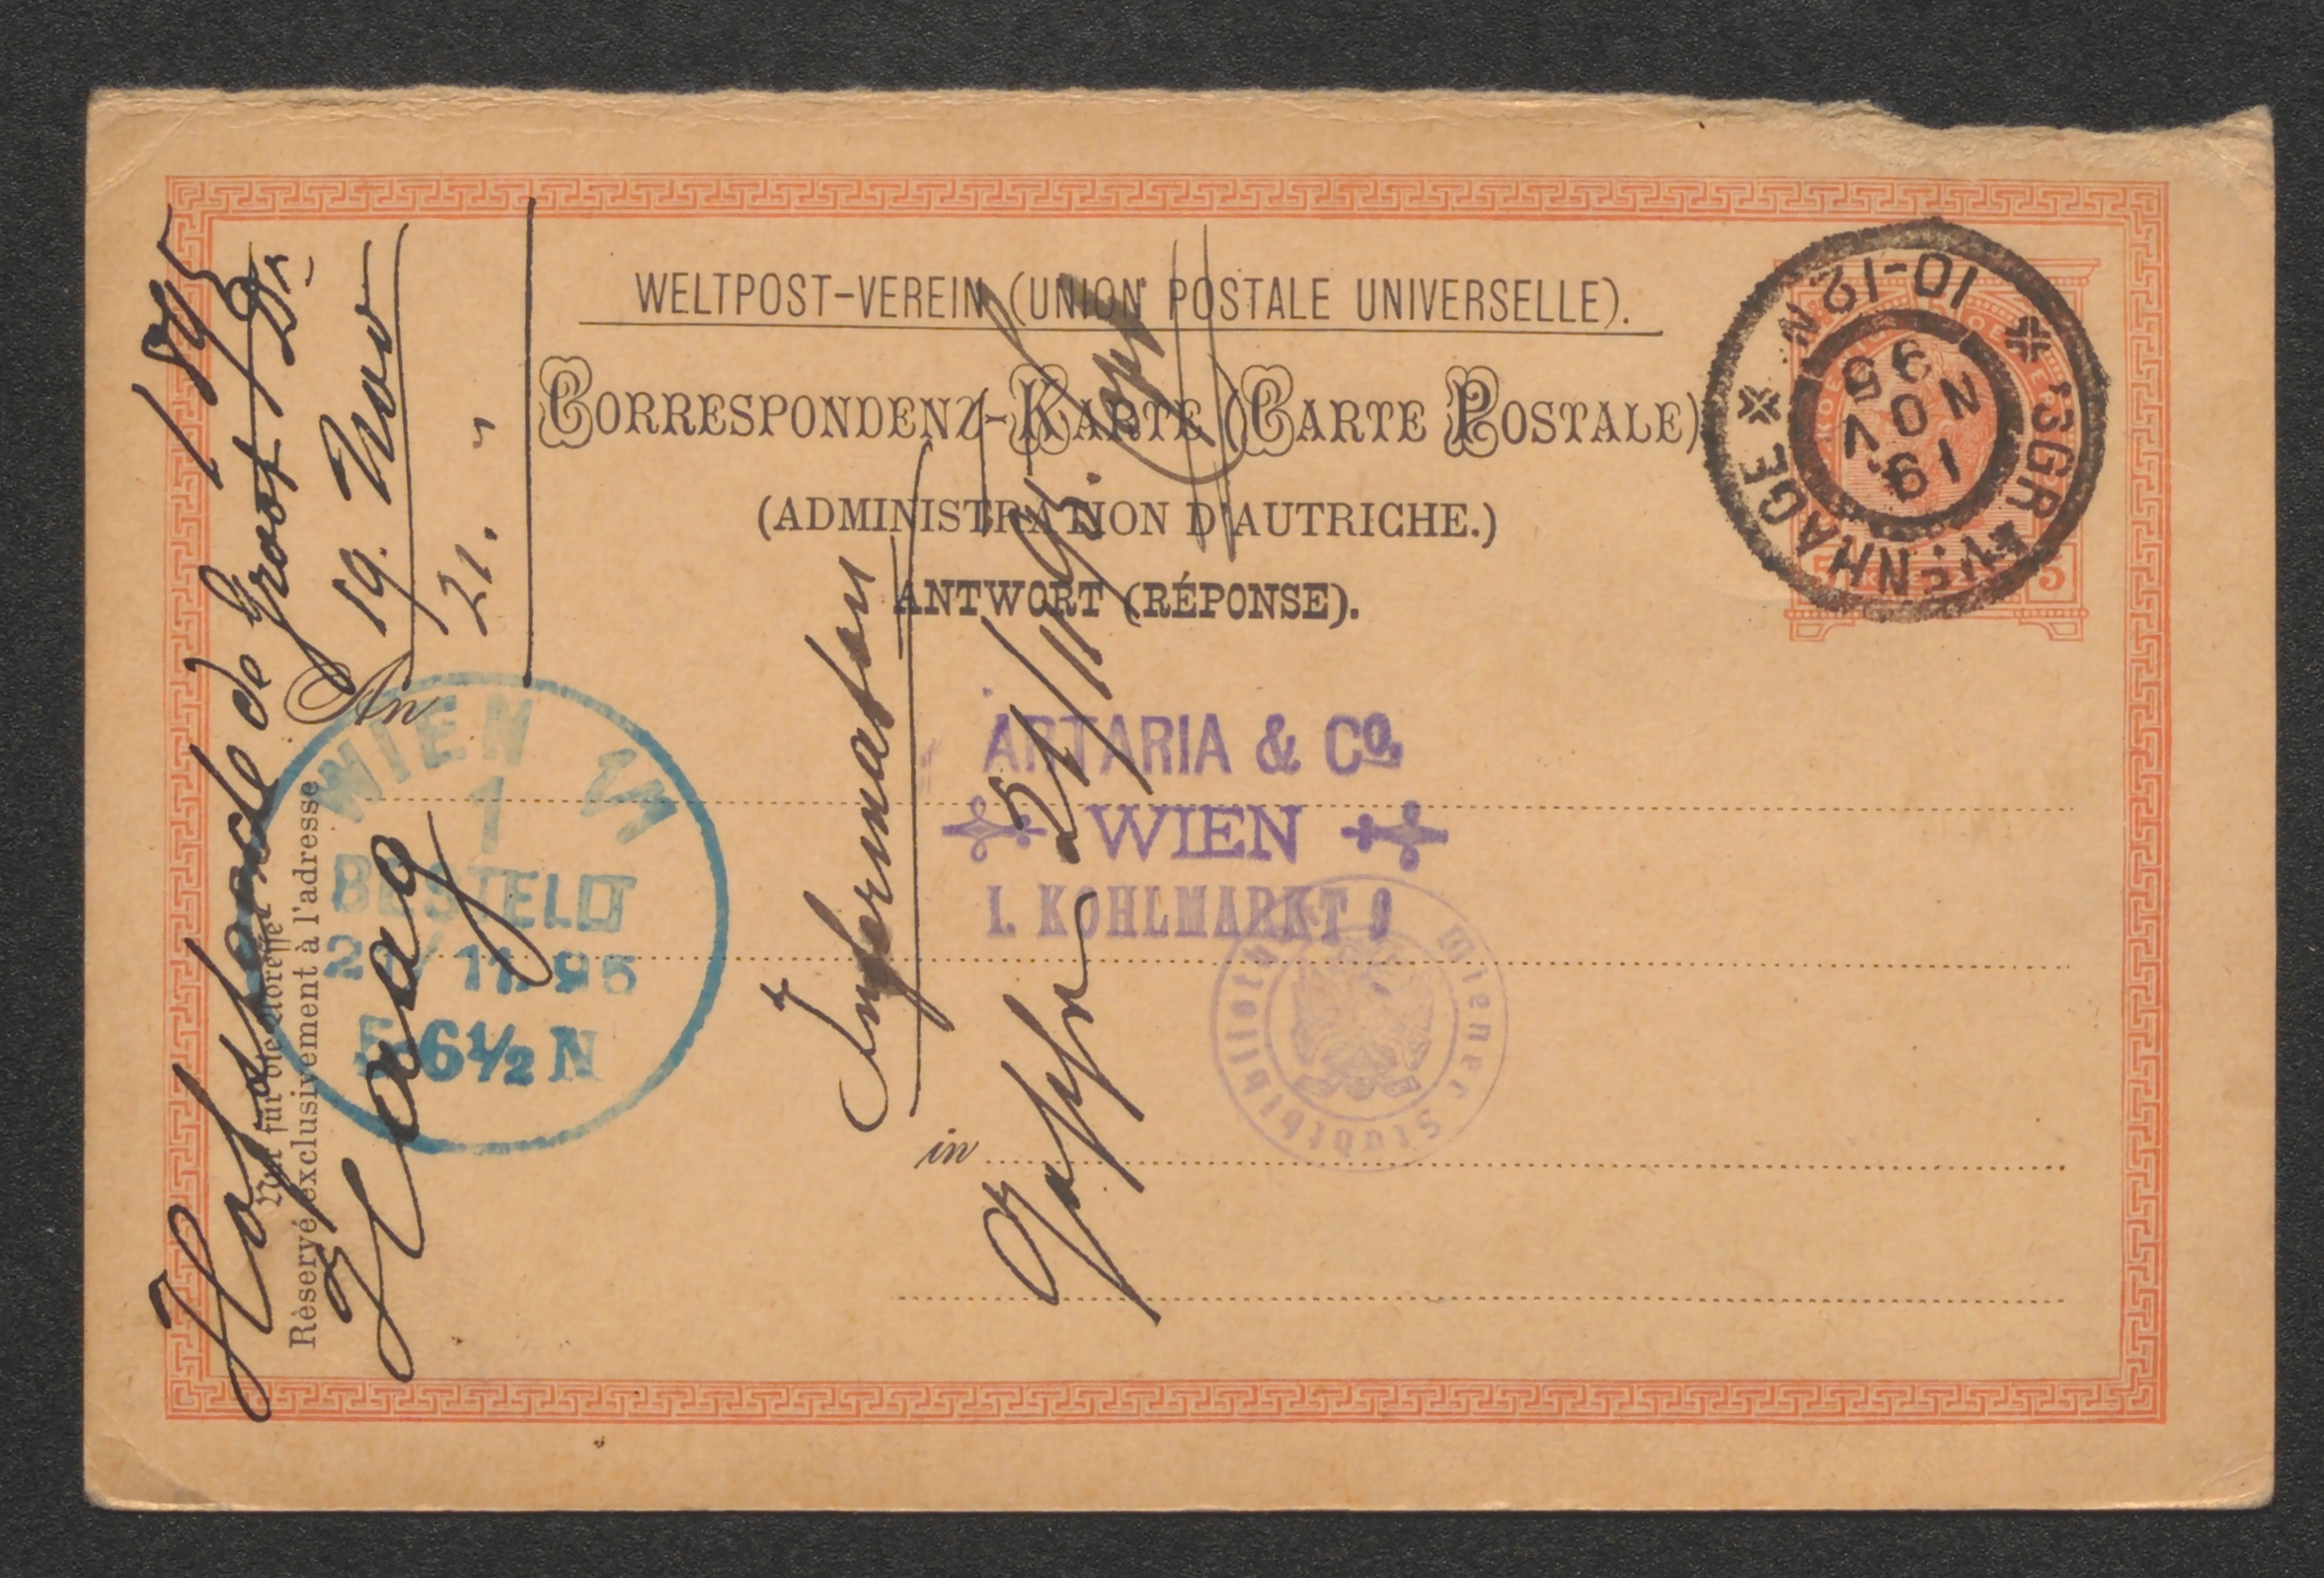 WELTPOST-VEREIN (UNION POSTALE UNIVERSELLE).
CORRESPONDENZ-KARTE (CARTE POSTALE)
(ADMINISTRATION D'AUTRICHE.)
ANTWORT (RÉPONSE).
An
in
Nur für die Adresse
Réservé exclusivement à l'adresse
ARTARIA & Co.
WIEN
I. KOHLMARKT 9
Wiener Stadtbibliothek
WIEN 1/1
1
BESTELLT
21 11 95
5-6½ N
'SGRAVENHAGE
10-12N
19 NOV 95
5
1895
Hofstede de Groot Dr
Haag
19. Nov
21. "
Informaton
21/11 95.